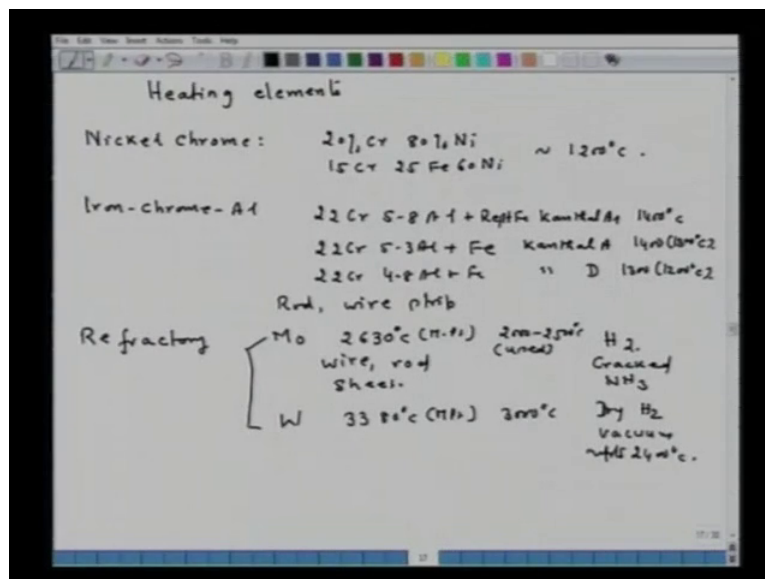 File Edit View Insert Actions Tools Help
Heating elements
Nickel Chrome: 20% Cr 80% Ni
15 Cr 25 Fe 60 Ni ~ 1200°C.
Iron-Chrome-Al 22 Cr 5-8 Al + Rest Fe Kanthal A1 1400°C
22 Cr 5-3 Al + Fe Kanthal A 1400 (1300°C)
22 Cr 4-8 Al + Fe " D 1300 (1200°C)
Rod, wire strip
Refractory Mo 2630°C (M.Pt) 2000-2500°C H2.
wire, rod (used) Cracked
Sheet. NH3
W 3380°C (MPt) 3000°C Dry H2
vacuum
2400°C.
17